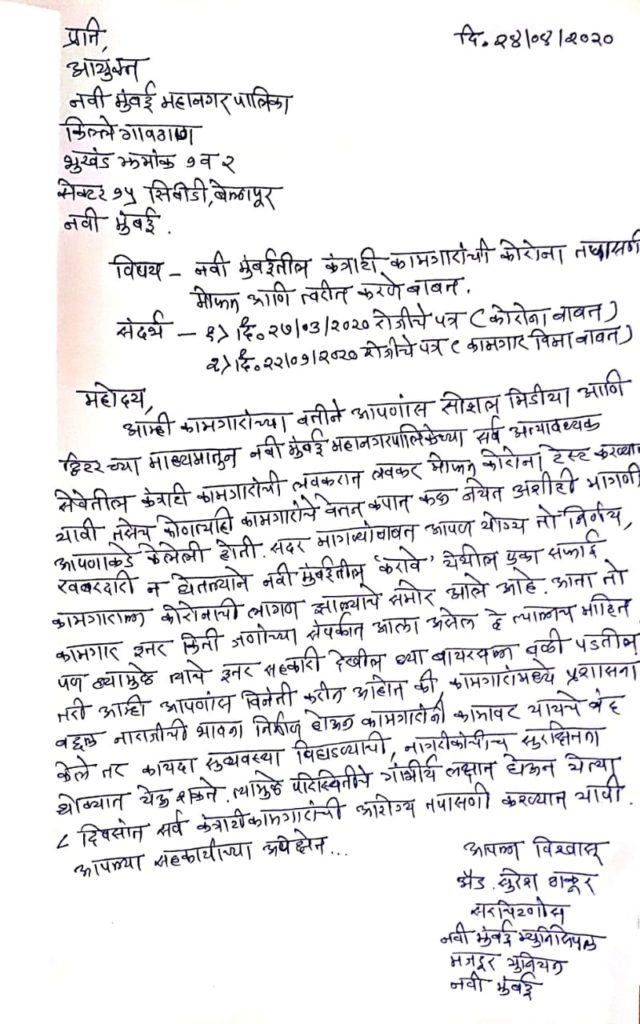 प्रति,
दि. २४/०४/२०२०
आयुक्त
नवी मुंबई महानगरपालिका
किल्ले गावठाण
भुखंड क्रमांक १ व २
सेक्टर १५ सिबीडी, बेलापूर
नवी मुंबई.
विषय – नवी मुंबईतील कंत्राटी कामगारांची कोरोना तपासणी
मोफत आणि त्वरीत करणे बाबत.
संदर्भ – १) दि. २७/०३/२०२० रोजीचे पत्र (कोरोना बाबत)
२) दि. २२/०१/२०२० रोजीचे पत्र (कामगार विमा बाबत)
महोदय,
आम्ही कामगारांच्या वतीने आपणांस सोशल मिडीया आणि
ट्विटरच्या माध्यमातुन नवी मुंबई महानगरपालिकेच्या सर्व अत्यावश्यक
सेवेतील कंत्राटी कामगारांची लवकरात लवकर मोफत कोरोना टेस्ट करण्यात
यावी तसेच कोणत्याही कामगारांचे वेतन कपात करू नयेत अशीही मागणी
आपणाकडे केलेली होती. सदर मागण्यांबाबत आपण योग्य तो निर्णय,
खबरदारी न घेतल्याने नवी मुंबईतील 'करावे' येथील एका सफाई
कामगाराला कोरोनाची लागण झाल्याचे समोर आले आहे. आता तो
कामगार इतर किती जणांच्या संपर्कात आला असेल हे त्यालाच माहित
पण त्यामुळे त्याचे इतर सहकारी देखील ह्या वायरसला बळी पडतील
तरी आम्ही आपणांस विनंती करीत आहोत की, कामगारांमध्ये प्रशासना
बद्दल नाराजीची भावना निर्माण होऊन कामगारांनी कामावर यायचे बंद
केले तर कायदा सुव्यवस्था बिघडव्याची, नागरीकांचीच सुरक्षितता
धोक्यात येऊ शकते. त्यामुळे परिस्थितीचे गांभीर्य लक्षात घेऊन येत्या
८ दिवसांत सर्व कंत्राटी कामगारांची आरोग्य तपासणी करण्यात यावी.
आपल्या सहकार्याच्या अपेक्षेत...
आपला विश्वासू
अॅड. सुरेश ठाकूर
सरचिटणीस
नवी मुंबई म्युनिसिपल
मजदूर युनियन
नवी मुंबई